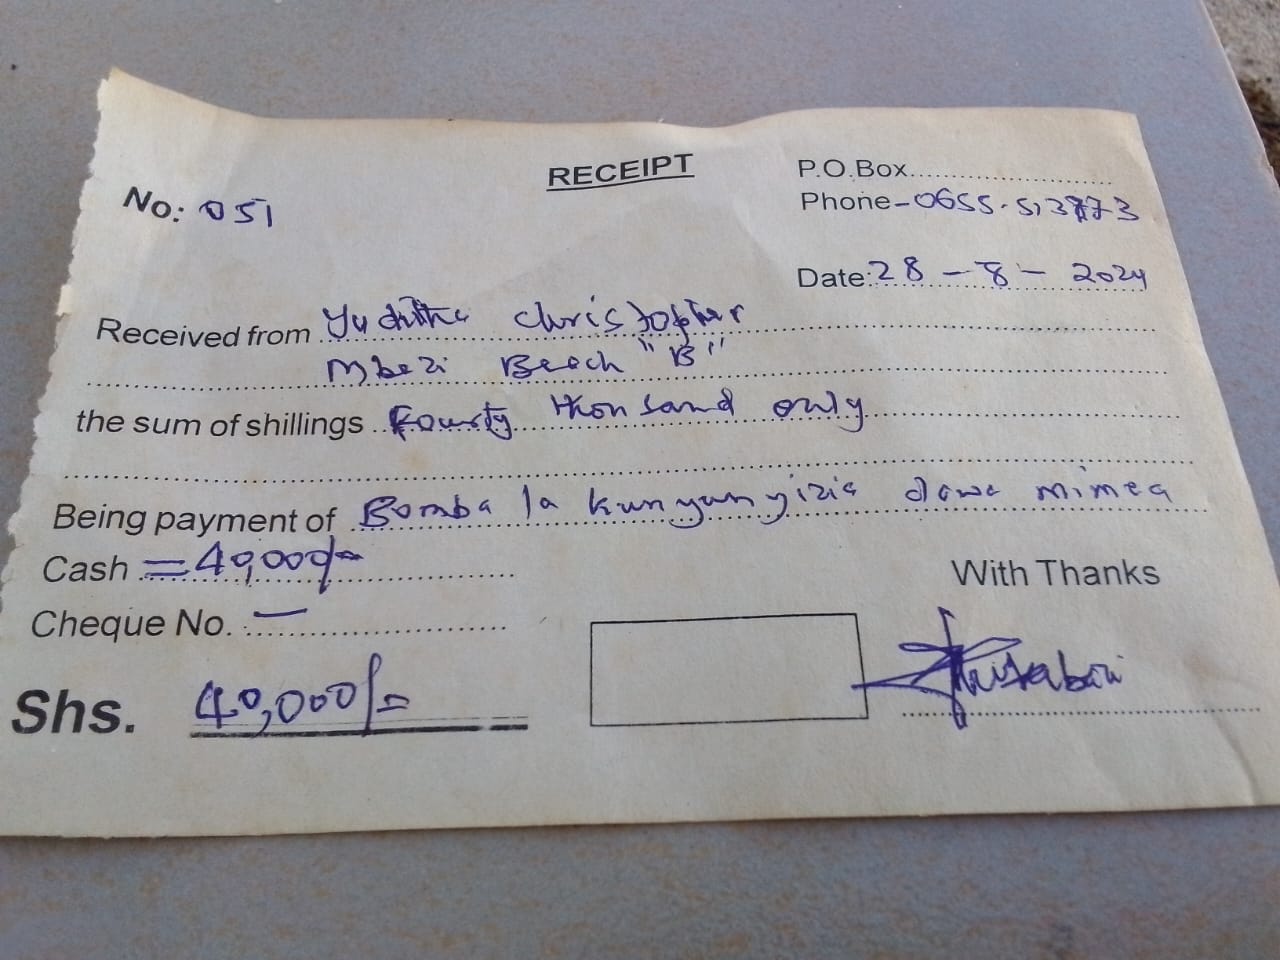 RECEIPT
P.O.Box
No: 051
Phone - 0655.513773
Date: 28 - 8 - 2024
Received from Yuditha Christopher
Mbezi Beach "B"
the sum of shillings Fourty thousand only
Being payment of Bomba la kunyunyizia dawa mimea
Cash = 40,000/=
With Thanks
Cheque No. —
Shs. 40,000/=